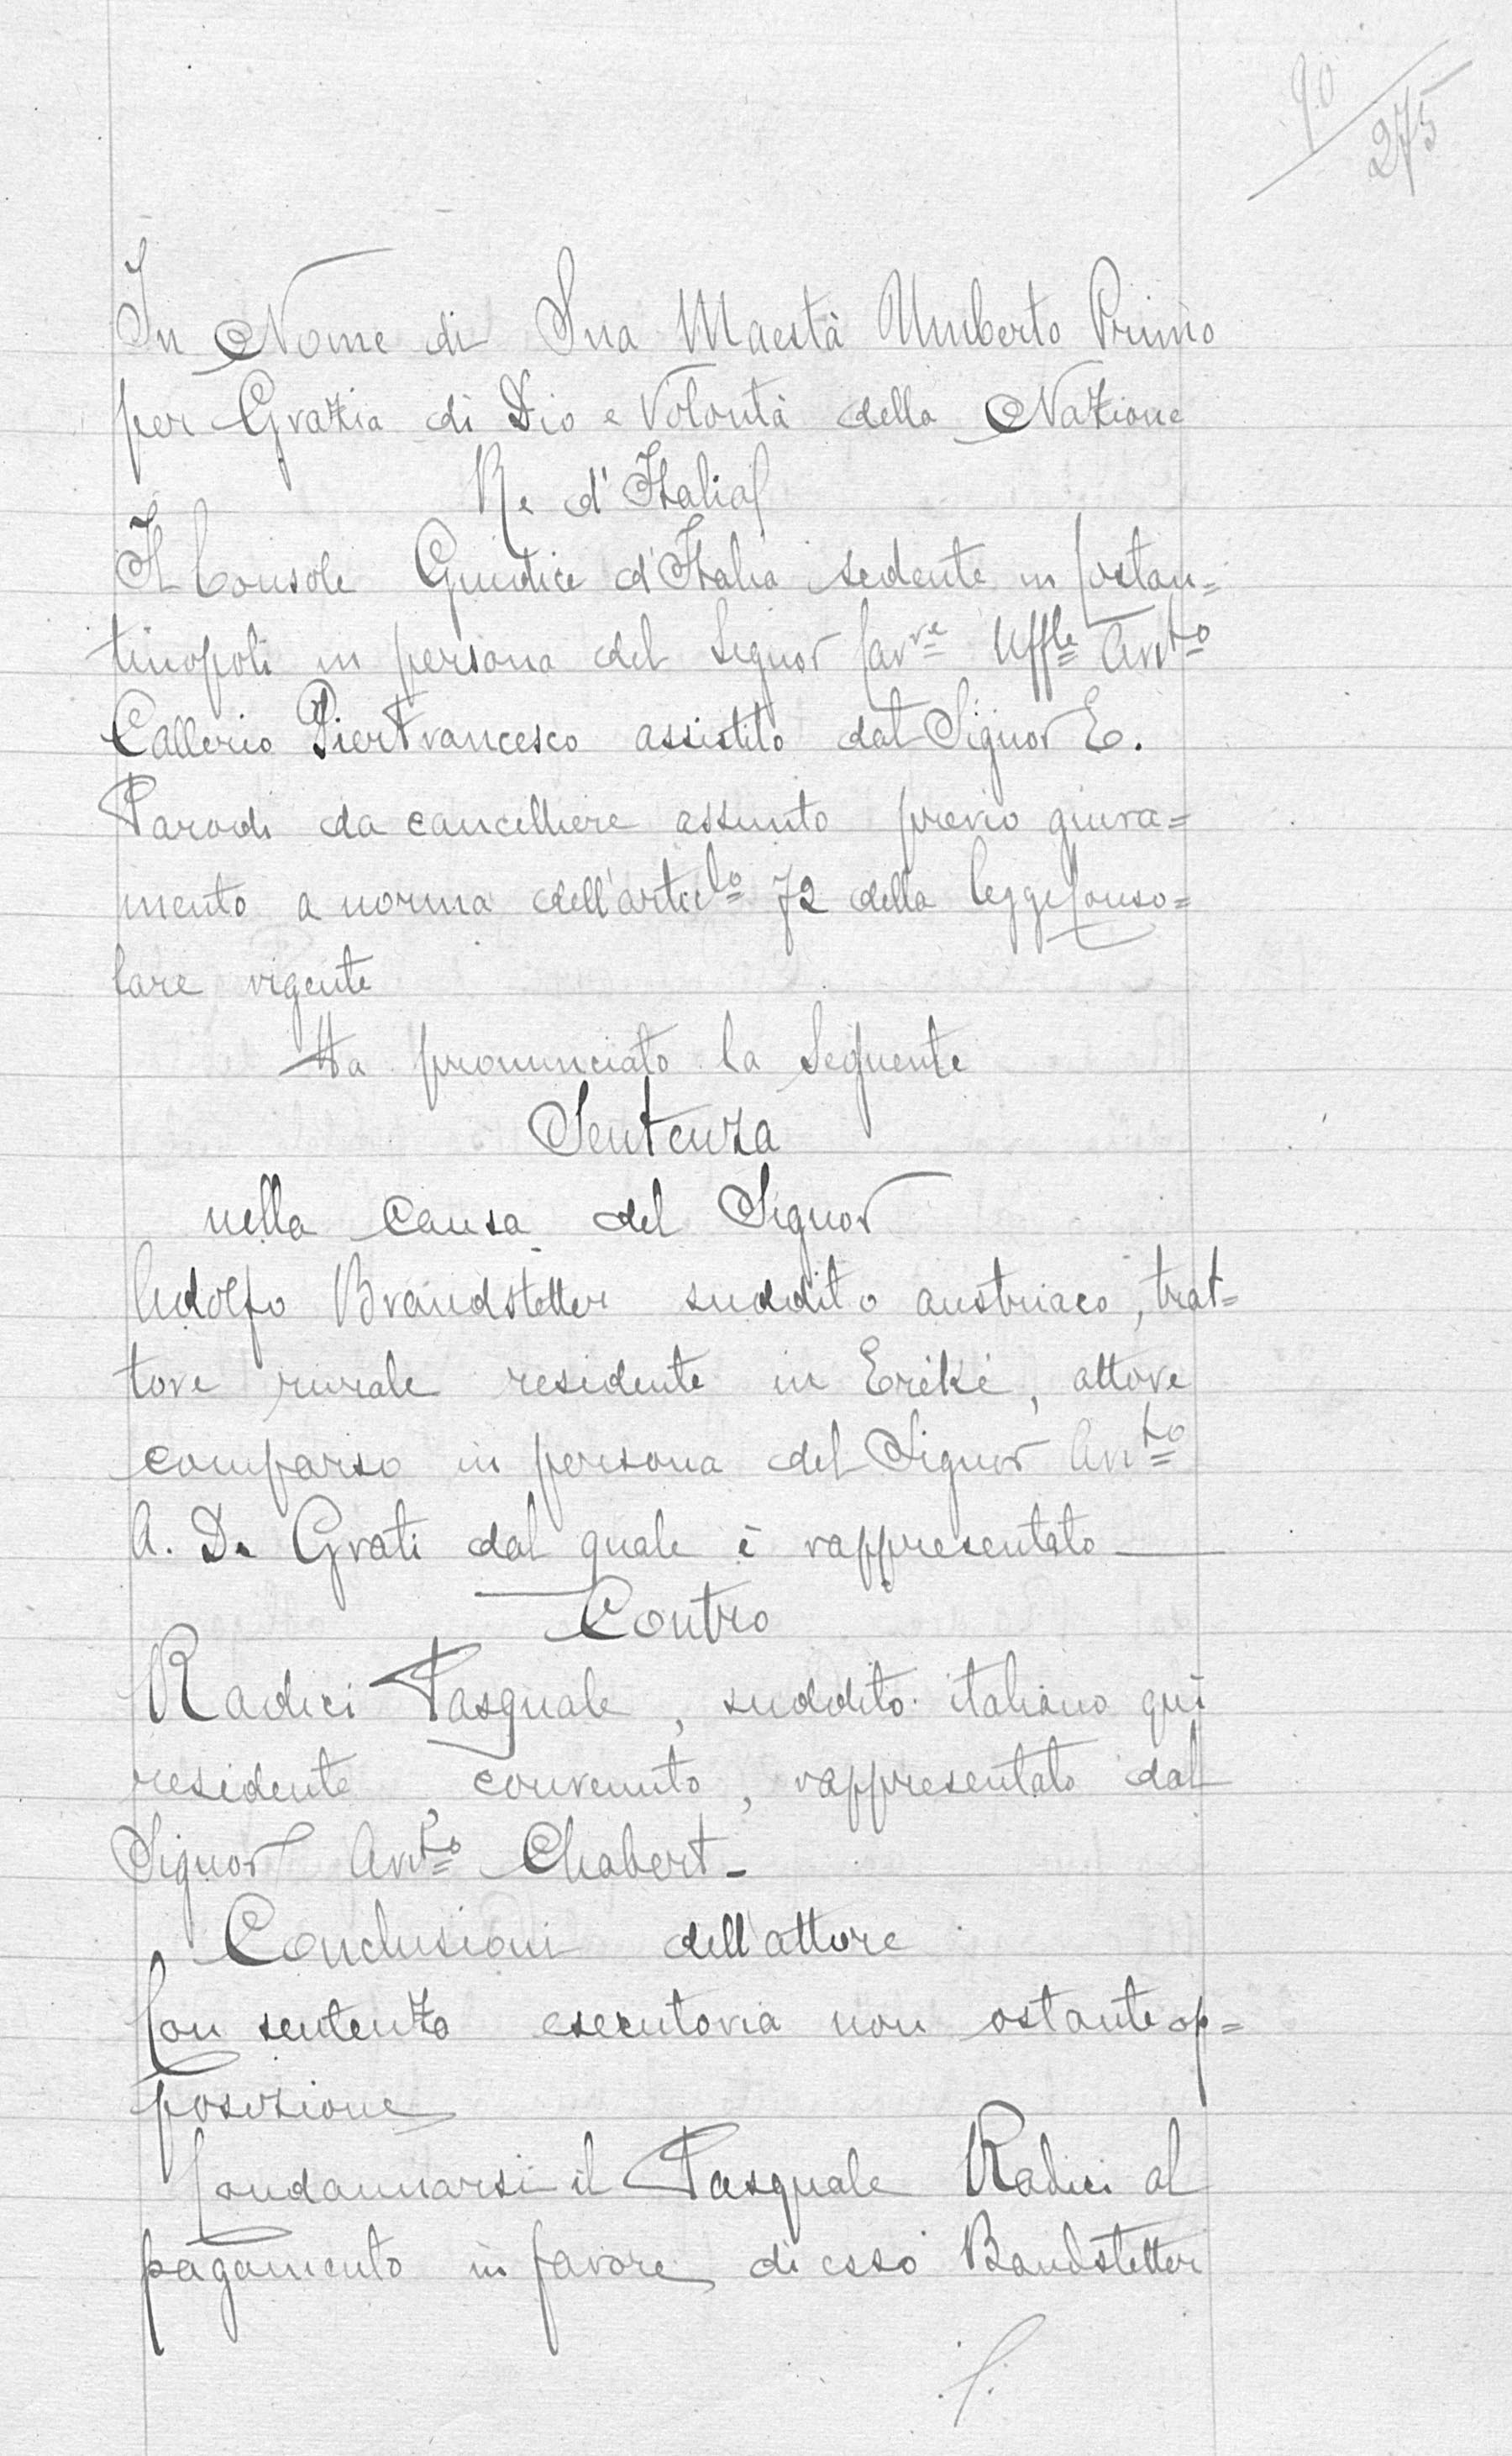 90
275
In Nome di Sua Maestà Umberto Primo
per Grazia di Dio e Volontà della Nazione
Re d'Italia
Il Console Giudice d'Italia sedente in Costan=
tinopoli in persona del Signor Cavre Uffle Avvto
Callerio Pier Francesco assistito dal Signor E.
Parodi da cancelliere assunto previo giura=
mento a norma dell'articlo 72 della legge Conso=
lare vigente
Ha pronunciato la Seguente
Sentenza
nella causa del Signor
Adolfo Brandstetter suddito austriaco, trat=
tore rurale residente in Eriké, attore
comparso in persona del Signor Avvto
A. De Grati dal quale è rappresentato
Contro
Radici Pasquale, suddito italiano qui
residente, convenuto, rappresentato dal
Signor Avvto Chabert-
Conclusioni dell'attore
Con sentenza esecutoria non ostante op=
posizione
Condannarsi il Pasquale Radici al
pagamento in favore di esso Bandstetter